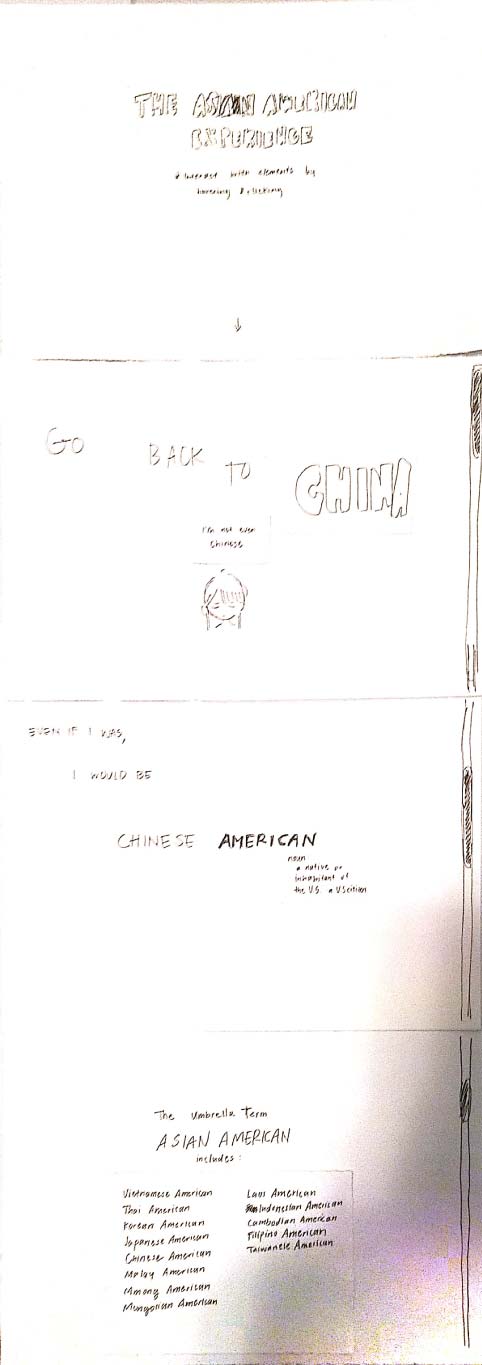 THE ASIAN AMERICAN
EXPERIENCE
* interact with elements by
hovering & clicking
GO BACK TO CHINA
I'm not even
chinese
EVEN IF I WAS,
I WOULD BE
CHINESE AMERICAN
noun
a native or
inhabitant of
the U.S. a US citizen
The Umbrella Term
ASIAN AMERICAN
includes:
Vietnamese American
Thai American
Korean American
Japanese American
Chinese American
Malay American
Hmong American
Mongolian American
Laos American
Indonesian American
Cambodian American
Filipino American
Taiwanese American